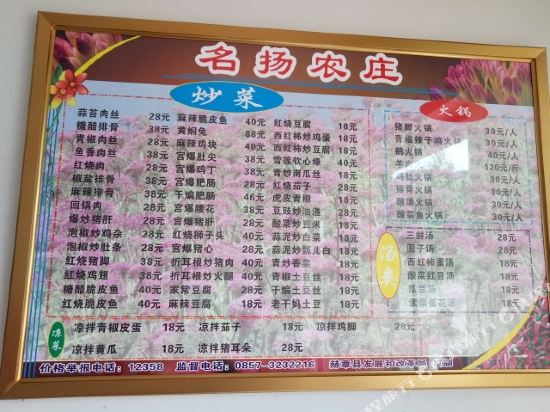 名扬农庄
炒菜
火锅
蒜苔肉丝 28元 麻辣脆皮鱼 40元 红烧豆腐 18元
糖醋排骨 38元 黄焖兔 88元 西红柿炒鸡蛋 18元
青椒肉丝 28元 麻辣鸡块 40元 西红柿炒豆腐 18元
鱼香肉丝 28元 宫爆肚尖 30元 雪莲软心缘 40元
红烧肉 28元 宫爆鸡丁 青炒南瓜丝 18元
椒盐排骨 38元 宫爆肥肠 红烧茄子 18元
麻辣排骨 38元 干煸肥肠 虎皮青椒 18元
回锅肉 28元 宫爆腰花 豆豉炒油渣 28元
爆炒猪肝 28元 宫爆猪肝 酸菜炒豆米 18元
泡椒炒鸡杂 28元 红烧狮子头 40元 蒜泥炒白菜 18元
泡椒炒肚条 28元 宫爆猪心 28元 蒜泥炒瓢儿白 18元
红烧猪脚 38元 折耳根炒猪肉 28元 青炒香菜 18元
红烧鸡翅 38元 折耳根炒火腿 30元 青椒土豆丝 18元
糖醋脆皮鱼 40元 家常豆腐 28元 干煸土豆丝 18元
红烧脆皮鱼 40元 麻辣豆腐 18元 老干妈土豆 18元
猪脚火锅 30元/人
青椒辣子鸡火锅 30元/人
鹅火锅 30元/人
120元/斤
炖鸡火锅 30元/人
排骨火锅 30元/人
酸汤火锅 30元/人
酸菜鱼火锅 30元/人
汤类
三鲜汤 28元
圆子汤 28元
西红柿蛋汤 18元
酸菜红豆汤 18元
瓜豆汤 18元
素菜蛋花汤 18元
凉菜
凉拌青椒皮蛋 18元 凉拌茄子 18元 凉拌鸡脚 28元
凉拌黄瓜 18元 凉拌猪耳朵 28元
价格举报电话：12358 监督电话：0857-3232216 赫章县发展和改革局